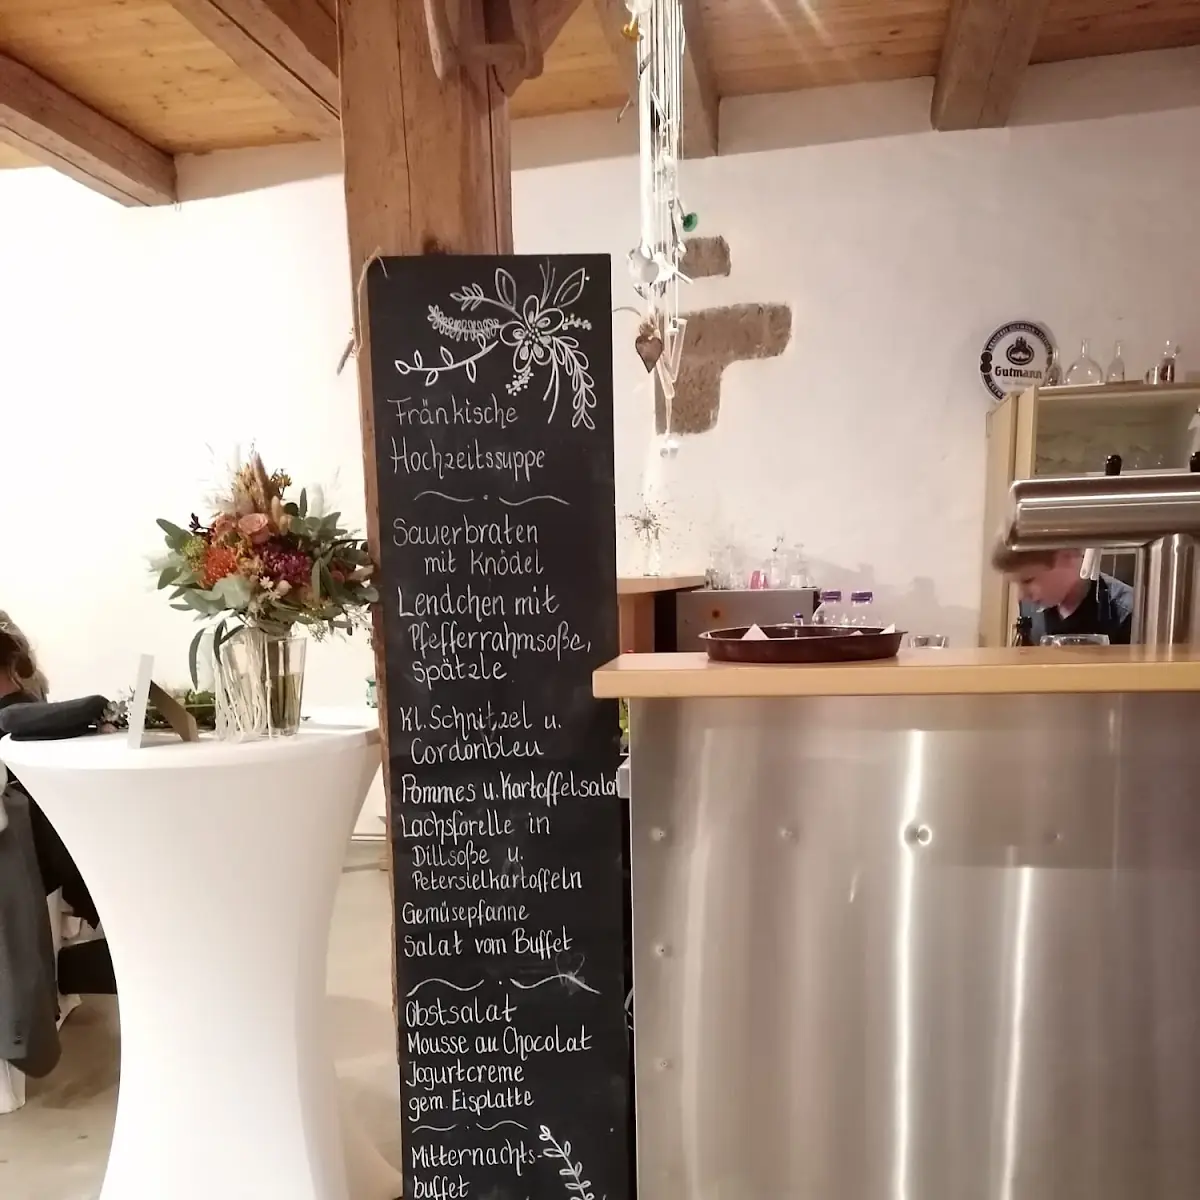 Fränkische
Hochzeitssuppe
Sauerbraten
mit Knödel
Lendchen mit
Pfefferrahmsoße,
Spätzle
Kl. Schnitzel u.
Cordonbleu
Pommes u. Kartoffelsalat
Lachsforelle in
Dillsoße u.
Petersielkartoffeln
Gemüsepfanne
Salat vom Buffet
Obstsalat
Mousse au Chocolat
Jogurtcreme
gem. Eisplatte
Mitternachts-
buffet
Gutmann